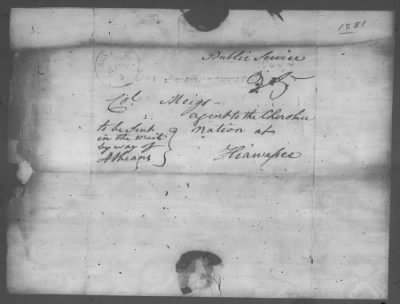 1581
Public Service
Col Meigs
agent to the Cherokee
Nation at
Hiawassee
to be Sent
in the mail
by way of
Athens